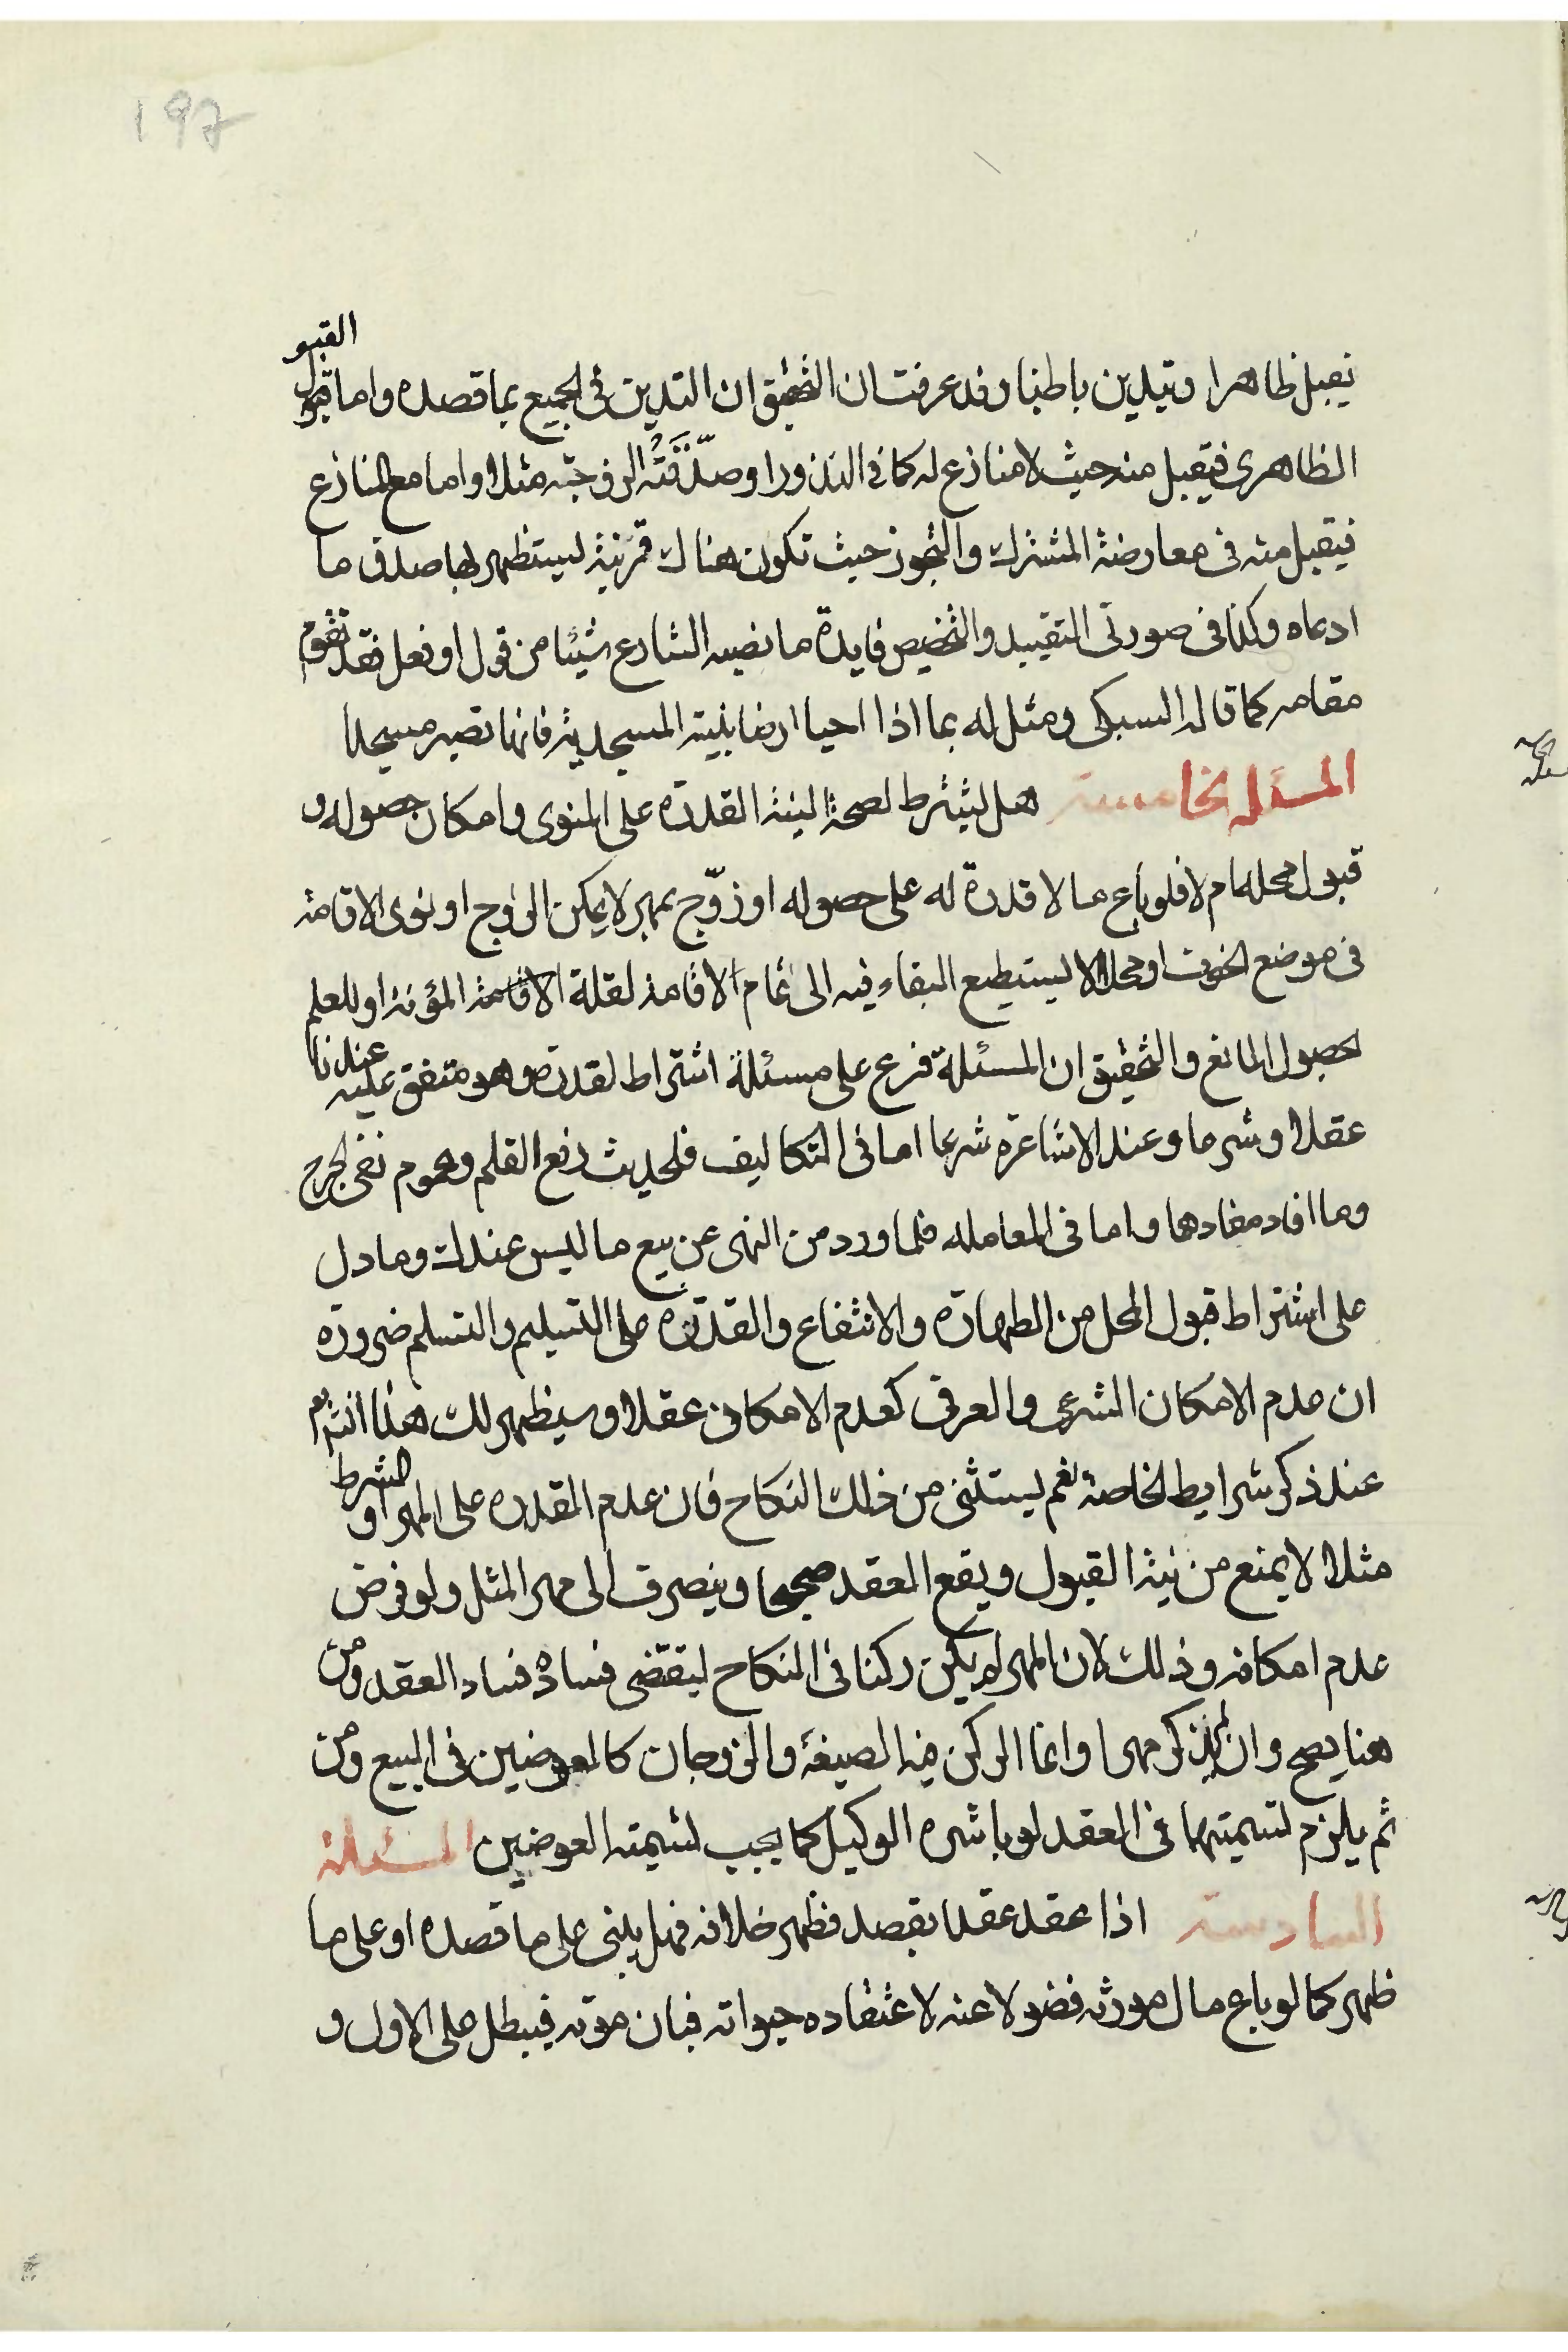 197
القبو
يقبل ظاهرا ويتدين باطنا وقد عرفت ان التحقيق ان التدين فى الجميع بما قصده واما قبول
الظاهرى فيقبل منه حيث لا منازع له كما فى النذور او صدّقَتْهُ الزوجته مثلا واما مع المنازع
فيقبل منه فى معارضة المشترك والتجوز حيث تكون هناك قرينة ليستظهر بها صدق ما
ادعاه وكذا فى صورتى التقييد والتخصيص فايدة ما نصبه الشارع شيئا من قول او فعل فقد تقوم
مقامه كما قاله السبكى ومثل له بما اذا احيا ارضا بنية المسجدية فانها تصير مسجدا
المسئلة الخامسة هل يشترط لصحة النية القدرة على المنوى وامكان حصوله و
قبول محله ام لا فلو باع ما لا قدرة له على حصوله او زوّج بمهر لا يمكن الزوج او نوى الاقامة
فى موضع الخوف او محلا لا يستطيع البقاء فيه الى تمام الاقامة لقلة الاقامة المؤنة او للعلم
لحصول المانع والتحقيق ان المسئلة فرع على مسئلة اشتراط القدرة وهو متفق عليه عندنا
عقلا وشرعا وعند الاشاعرة شرعا اما فى التكاليف فلحديث رفع القلم وعموم نفى الحرج
وما افاد مفادها واما فى المعامله فلما ورد من النهى عن بيع ما ليس عندك وما دل
على اشتراط قبول المحل من الطهارة والانتفاع والقدرة على التسليم والتسلم ضرورة
ان عدم الامكان الشرعى والعرفى كعدم الامكان عقلا وسيظهر لك هذا انشم
عند ذكر شرايط الخاصة نعم يستثنى من ذلك النكاح فان عدم القدره على المهر او الشرط
مثلا لا يمنع من نية القبول ويقع العقد صحيحا وينصرف الى مهر المثل ولو فرض
عدم امكانه وذلك لان المهر لم يكن ركنا فى النكاح ليقتضى فساده فساد العقد ومن
هنا يصح وان لم يذكر مهرا وانما الركن فيه الصيغة والزوجان كالعوضين فى البيع ومن
ثم يلزم تسميتهما فى العقد لو باشره الوكيل كما يجب تسميته العوضين المسئلة
السادسة اذا عقد عقدا بقصد فظهر خلافه فهل يبنى على ما قصده او على ما
ظهر كما لو باع مال مورثه فضولا عنه لاعتقاده حيواته فبان موته فيبطل على الاول و